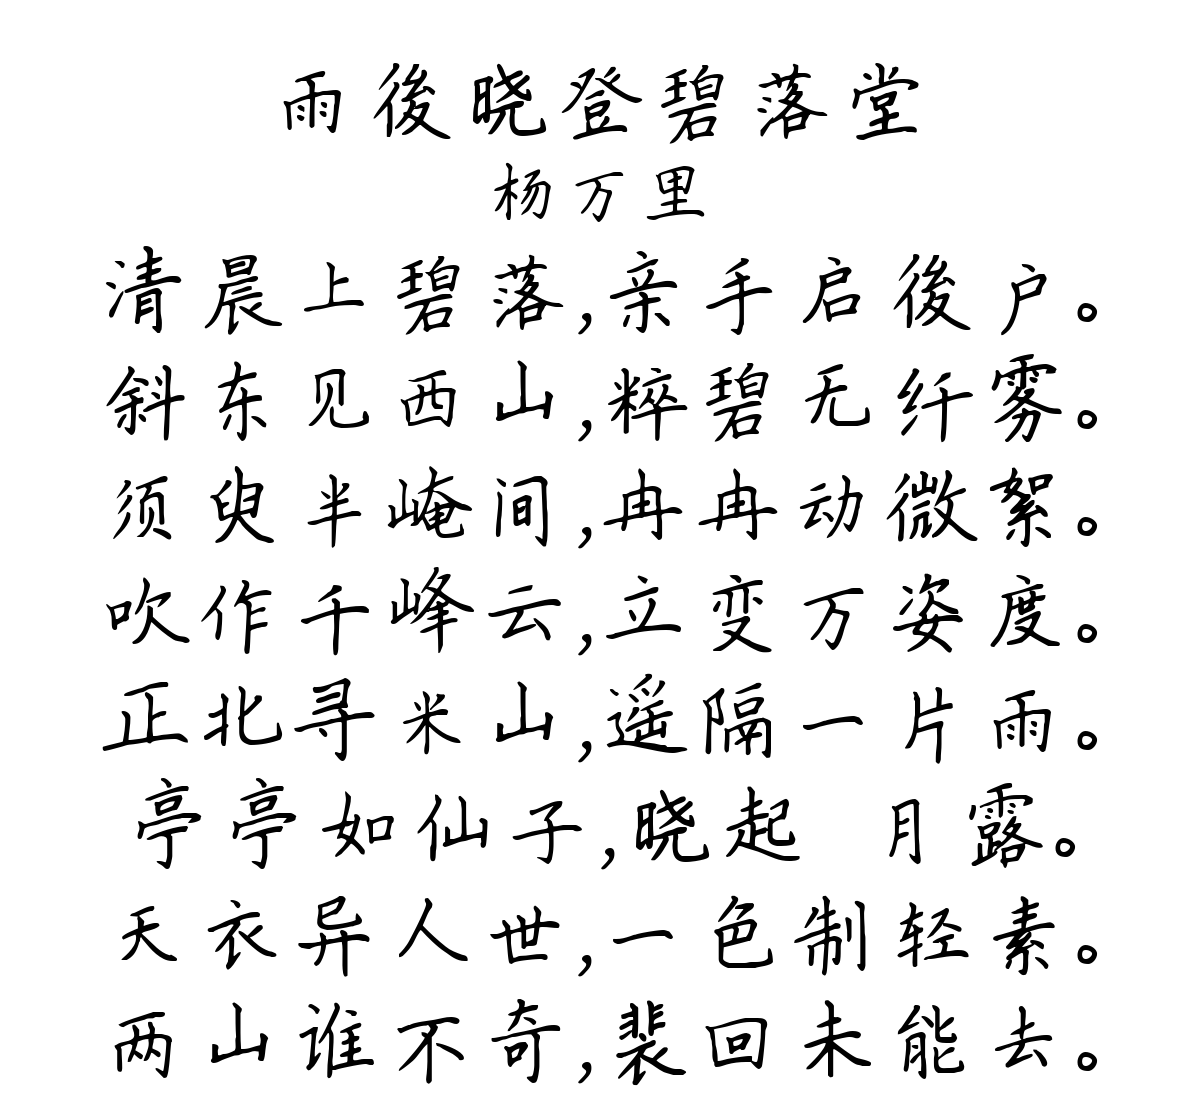 雨後晓登碧落堂
杨万里
清晨上碧落,亲手启後户。
斜东见西山,粹碧无纤雾。
须臾半崦间,冉冉动微絮。
吹作千峰云,立变万姿度。
正北寻米山,遥隔一片雨。
亭亭如仙子,晓起 月露。
天衣异人世,一色制轻素。
两山谁不奇,裴回未能去。